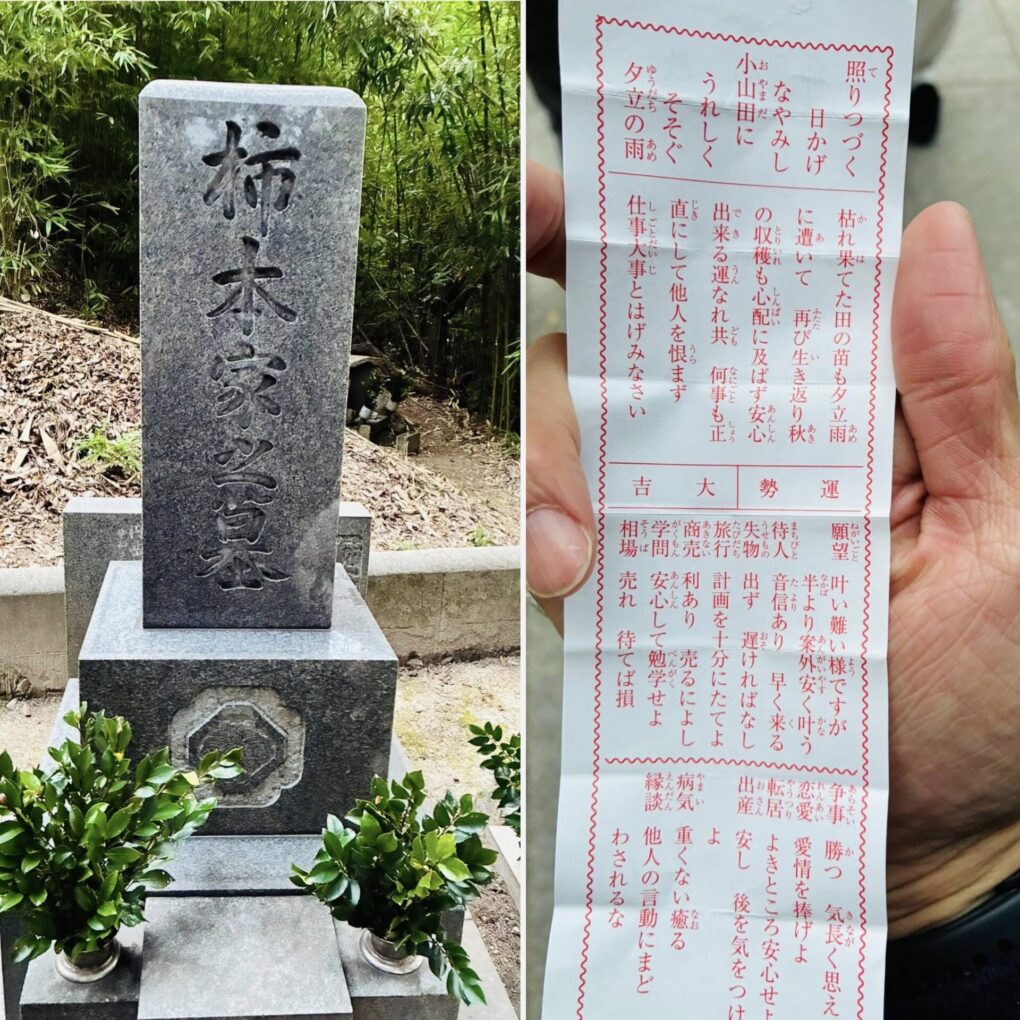 柿本家之墓
照りつづく
日かげ
なやみし
小山田に
うれしく
そそぐ
夕立の雨
枯れ果てた田の苗も夕立雨
に遭いて　再び生き返り秋
の収穫も心配に及ばず安心
出来る運なれ共　何事も正
直にして他人を恨まず
仕事大事とはげみなさい
運勢　大吉
願望　叶い難い様ですが
半より案外安く叶う
待人　音信あり　早く来る
失物　出ず　遅ければなし
旅行　計画を十分にたてよ
商売　利あり　売るによし
学問　安心して勉学せよ
相場　売れ　待てば損
争事　勝つ　気長く思え
恋愛　愛情を捧げよ
転居　よきところ安心せよ
出産　安し　後を気をつけ
よ
病気　重くない癒る
縁談　他人の言動にまど
わされるな